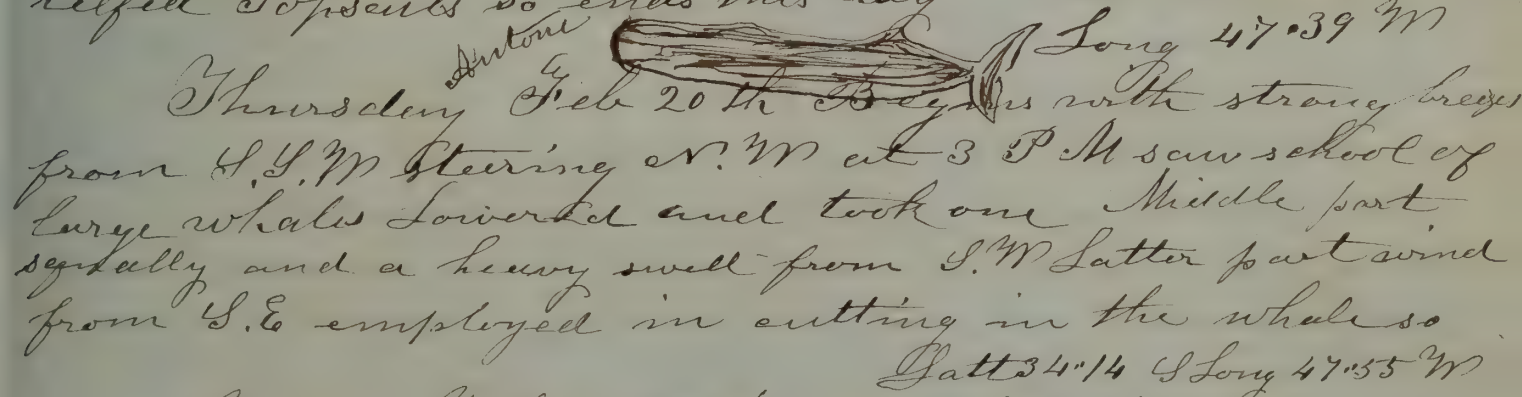 Topsails so ends this day
Long 47.39 W
Antone
Thursday Feb 20th Begins with strong breezes
from S.S.W steering N.W at 3 P M saw school of
large whales Lowered and took one Middle part
squally and a heavy swell from S.W Latter part wind
from S.E employed in cutting in the whale so
Latt 34.14 S Long 47.55 W